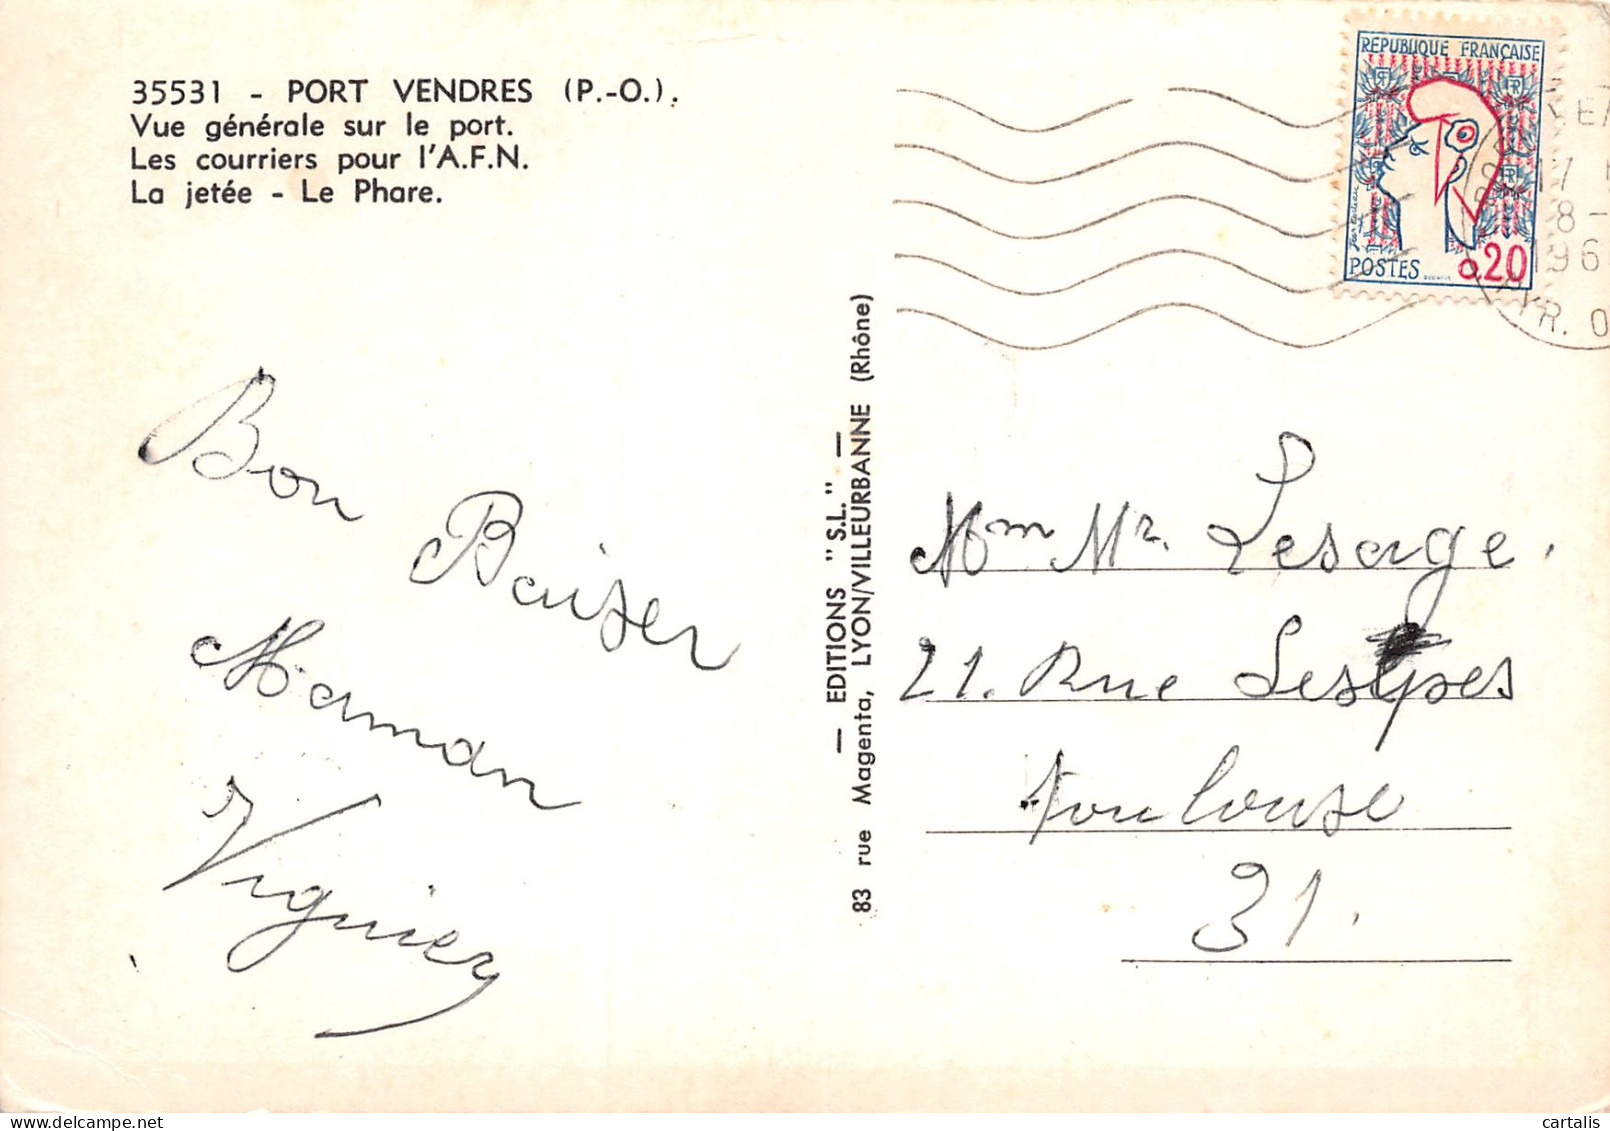 35531 - PORT VENDRES (P.-O.).
Vue générale sur le port.
Les courriers pour l'A.F.N.
La jetée - Le Phare.
Bon Baiser
Maman
Viguier
— EDITIONS "S.L." —
83 rue Magenta, LYON/VILLEURBANNE (Rhône)
REPUBLIQUE FRANÇAISE
POSTES 0,20
17
8 -
196
YR. O
Mm Mr. Lesage.
21. Rue
Toulouse
31.
cartalis